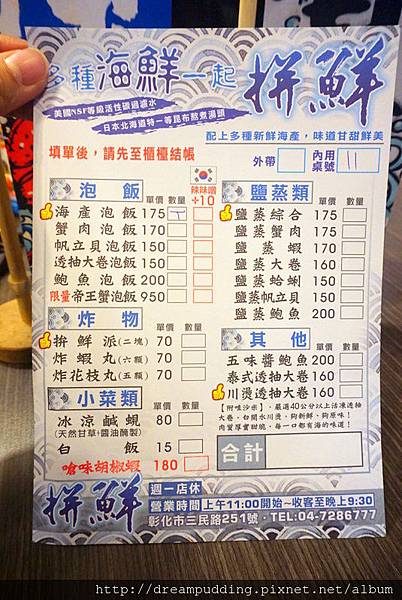 多種海鮮一起拼鮮
美國NSF等級活性碳過濾水
日本北海道特一等昆布熬煮湯頭
配上多種新鮮海產，味道甘甜鮮美
填單後，請先至櫃檯結帳
外帶
內用桌號 11
泡飯 單價 數量 辣味噌+10
海產泡飯 175
蟹肉泡飯 150
帆立貝泡飯 150
透抽大卷泡飯 150
鮑魚泡飯 200
限量帝王蟹泡飯 950
炸物 單價 數量
拚鮮派(二塊) 70
炸蝦丸(六顆) 70
炸花枝丸(五顆) 70
小菜類 單價 數量
冰涼鹹蜆 80
(天然甘草+醬油醃製)
白飯 15
嗆味胡椒蝦 180
鹽蒸類 單價 數量
鹽蒸綜合 175
鹽蒸蟹肉 175
鹽蒸蝦 170
鹽蒸大卷 160
鹽蒸蛤蜊 150
鹽蒸帆立貝 150
鹽蒸鮑魚 200
其他 單價 數量
五味醬鮑魚 200
泰式透抽大卷 160
川燙透抽大卷 160
【附味沙米，嚴選40公分以上活凍透抽
大卷，台閩水川燙，夠新鮮、夠原味！
肉質厚實甜脆，每一口都有海的味道！
合計
拼鮮
週一店休
營業時間 上午11:00開始~收客至晚上9:30
彰化市三民路251號・TEL:04-7286777
http://dreampudding.pixnet.net/album